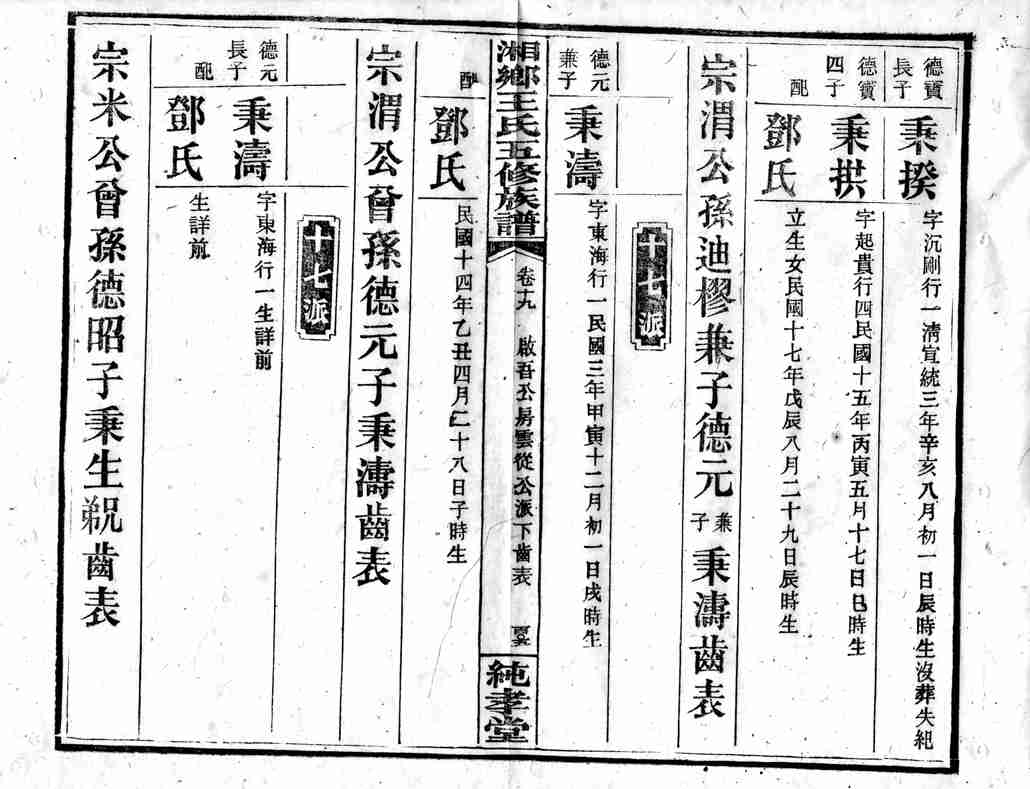 德寶長子
秉揆
字沉剛行一清宣統三年辛亥八月初一日辰時生沒葬失紀
德寶四子
秉拱
字起貴行四民國十五年丙寅五月十七日巳時生
配
鄧氏
立生女民國十七年戊辰八月二十九日辰時生
宗渭公孫迪樛兼子德元兼子秉濤齒表
十七派
德元兼子
秉濤
字東海行一民國三年甲寅十二月初一日戌時生
湘鄉王氏五修族譜
卷十九
啟吾公房雲從公派下齒表
純孝堂
配
鄧氏
民國十四年乙丑四月二十八日子時生
宗渭公曾孫德元子秉濤齒表
十七派
德元長子
秉濤
字東海行一生詳前
配
鄧氏
生詳前
宗米公曾孫德昭子秉生覡齒表